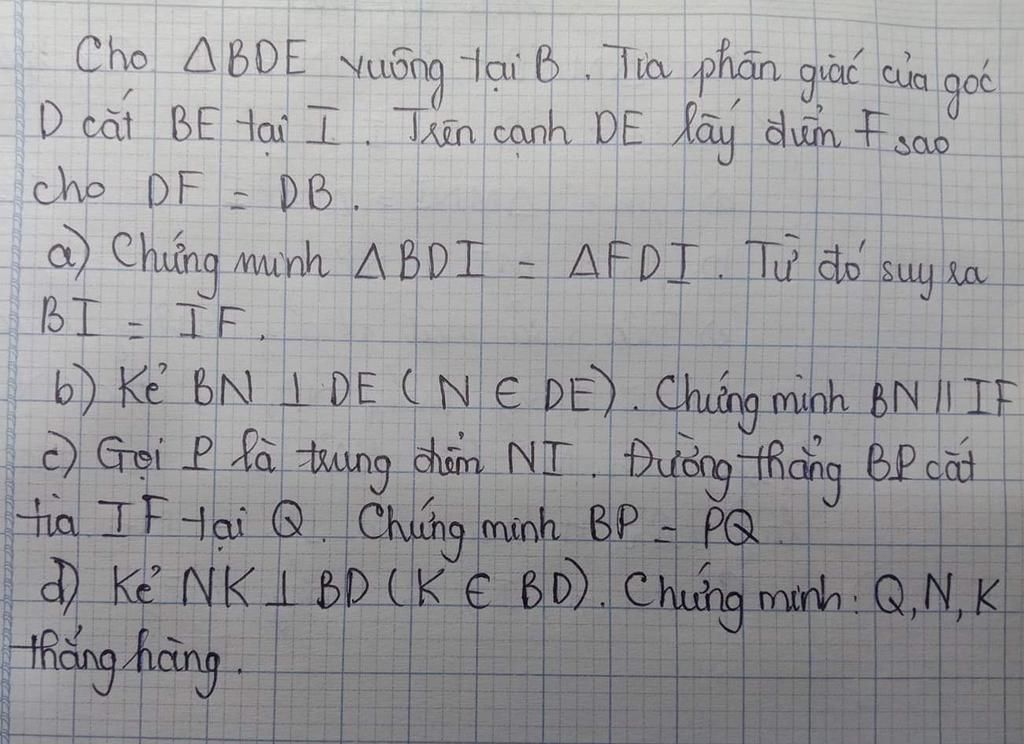 Cho ΔBDE vuông tại B. Tia phân giác của góc
D cắt BE tại I. Trên cạnh DE lấy điểm F sao
cho DF = DB.
a) Chứng minh ΔBDI = ΔFDI. Từ đó suy ra
BI = IF.
b) Kẻ BN ⊥ DE (N ∈ DE). Chứng minh BN // IF
c) Gọi P là trung điểm NI. Đường thẳng BP cắt
tia IF tại Q. Chứng minh BP = PQ
d) Kẻ NK ⊥ BD (K ∈ BD). Chứng minh: Q, N, K
thẳng hàng.